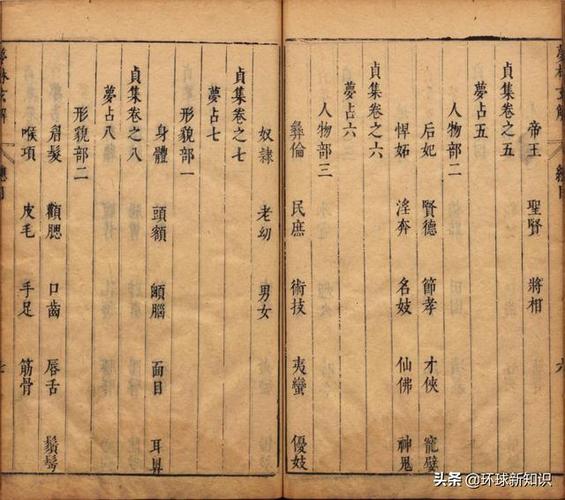 夢林玄解 總目 六
帝王 聖賢 將相
貞集卷之五
夢占五
人物部二
后妃 賢德 節孝 才俠 寵嬖
悍妬 淫奔 名妓 仙佛 神鬼
貞集卷之六
夢占六
人物部三
彝倫 民庶 術技 夷蠻 優妓
奴隸 老幼 男女
貞集卷之七
夢占七
形貌部一
身體 頭額 顱腦 面目 耳鼻
貞集卷之八
夢占八
形貌部二
眉髮 顴腮 口齒 唇舌 鬚髯
喉項 皮毛 手足 筋骨
夢林玄解 總目 七
头条 @环球新知识